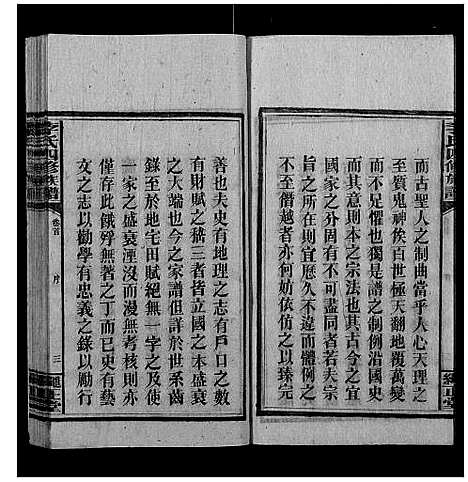 而古聖人之制曲當乎人心天理之
至質鬼神俟百世極天翻地覆萬變
而不見懼也獨是譜之制例沿國史
而其意則本之宗法也其古今之宜
國家之外固有不可同者若夫其
旨之所在則宜歷久不違而體例之
不至僭越者亦何妨依仿之以臻完
善也夫史有地理之志有戶口之數
有財賦之稽三者皆立國之本盛衰
之大端也今之家譜但詳於世系齒
錄至於地宅田賦絕無一字之及使
一家之盛衰湮沒而漫無考核則亦
僅存此餓殍無著之丁而已史有藝
文之志以勸學有忠義之錄以勵行
李氏四修族譜
卷首
序
三